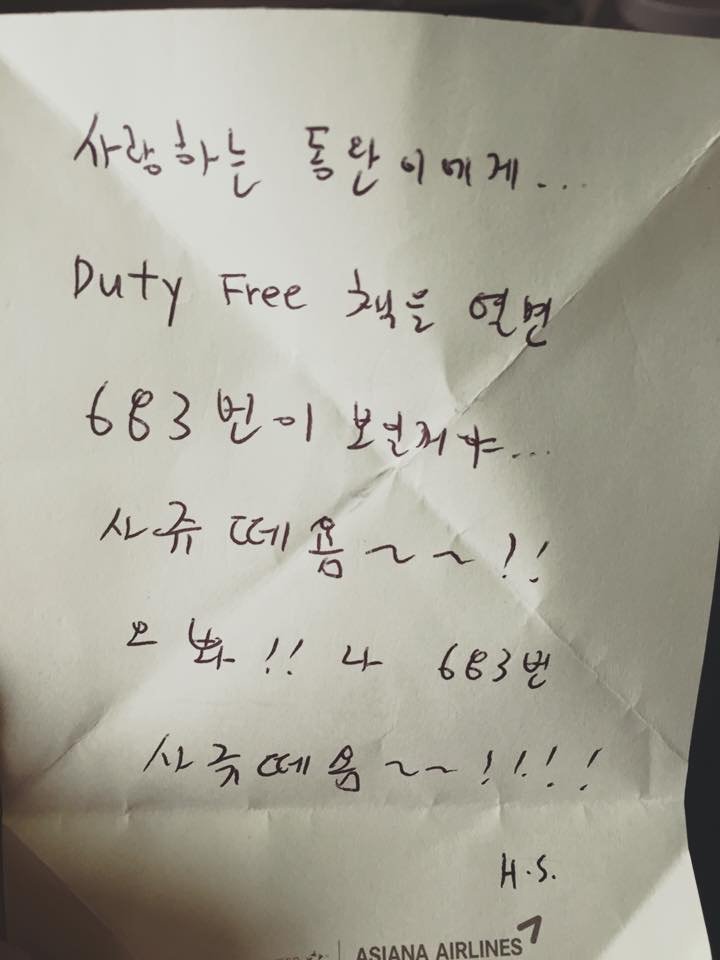 사랑하는 동완이에게...
Duty Free 책을 열면
683번이 보일거야...
사쥬떼욤~~!!
오봐!! 나 683번
사쥬떼욤~~!!!!
H.S.
ASIANA AIRLINES